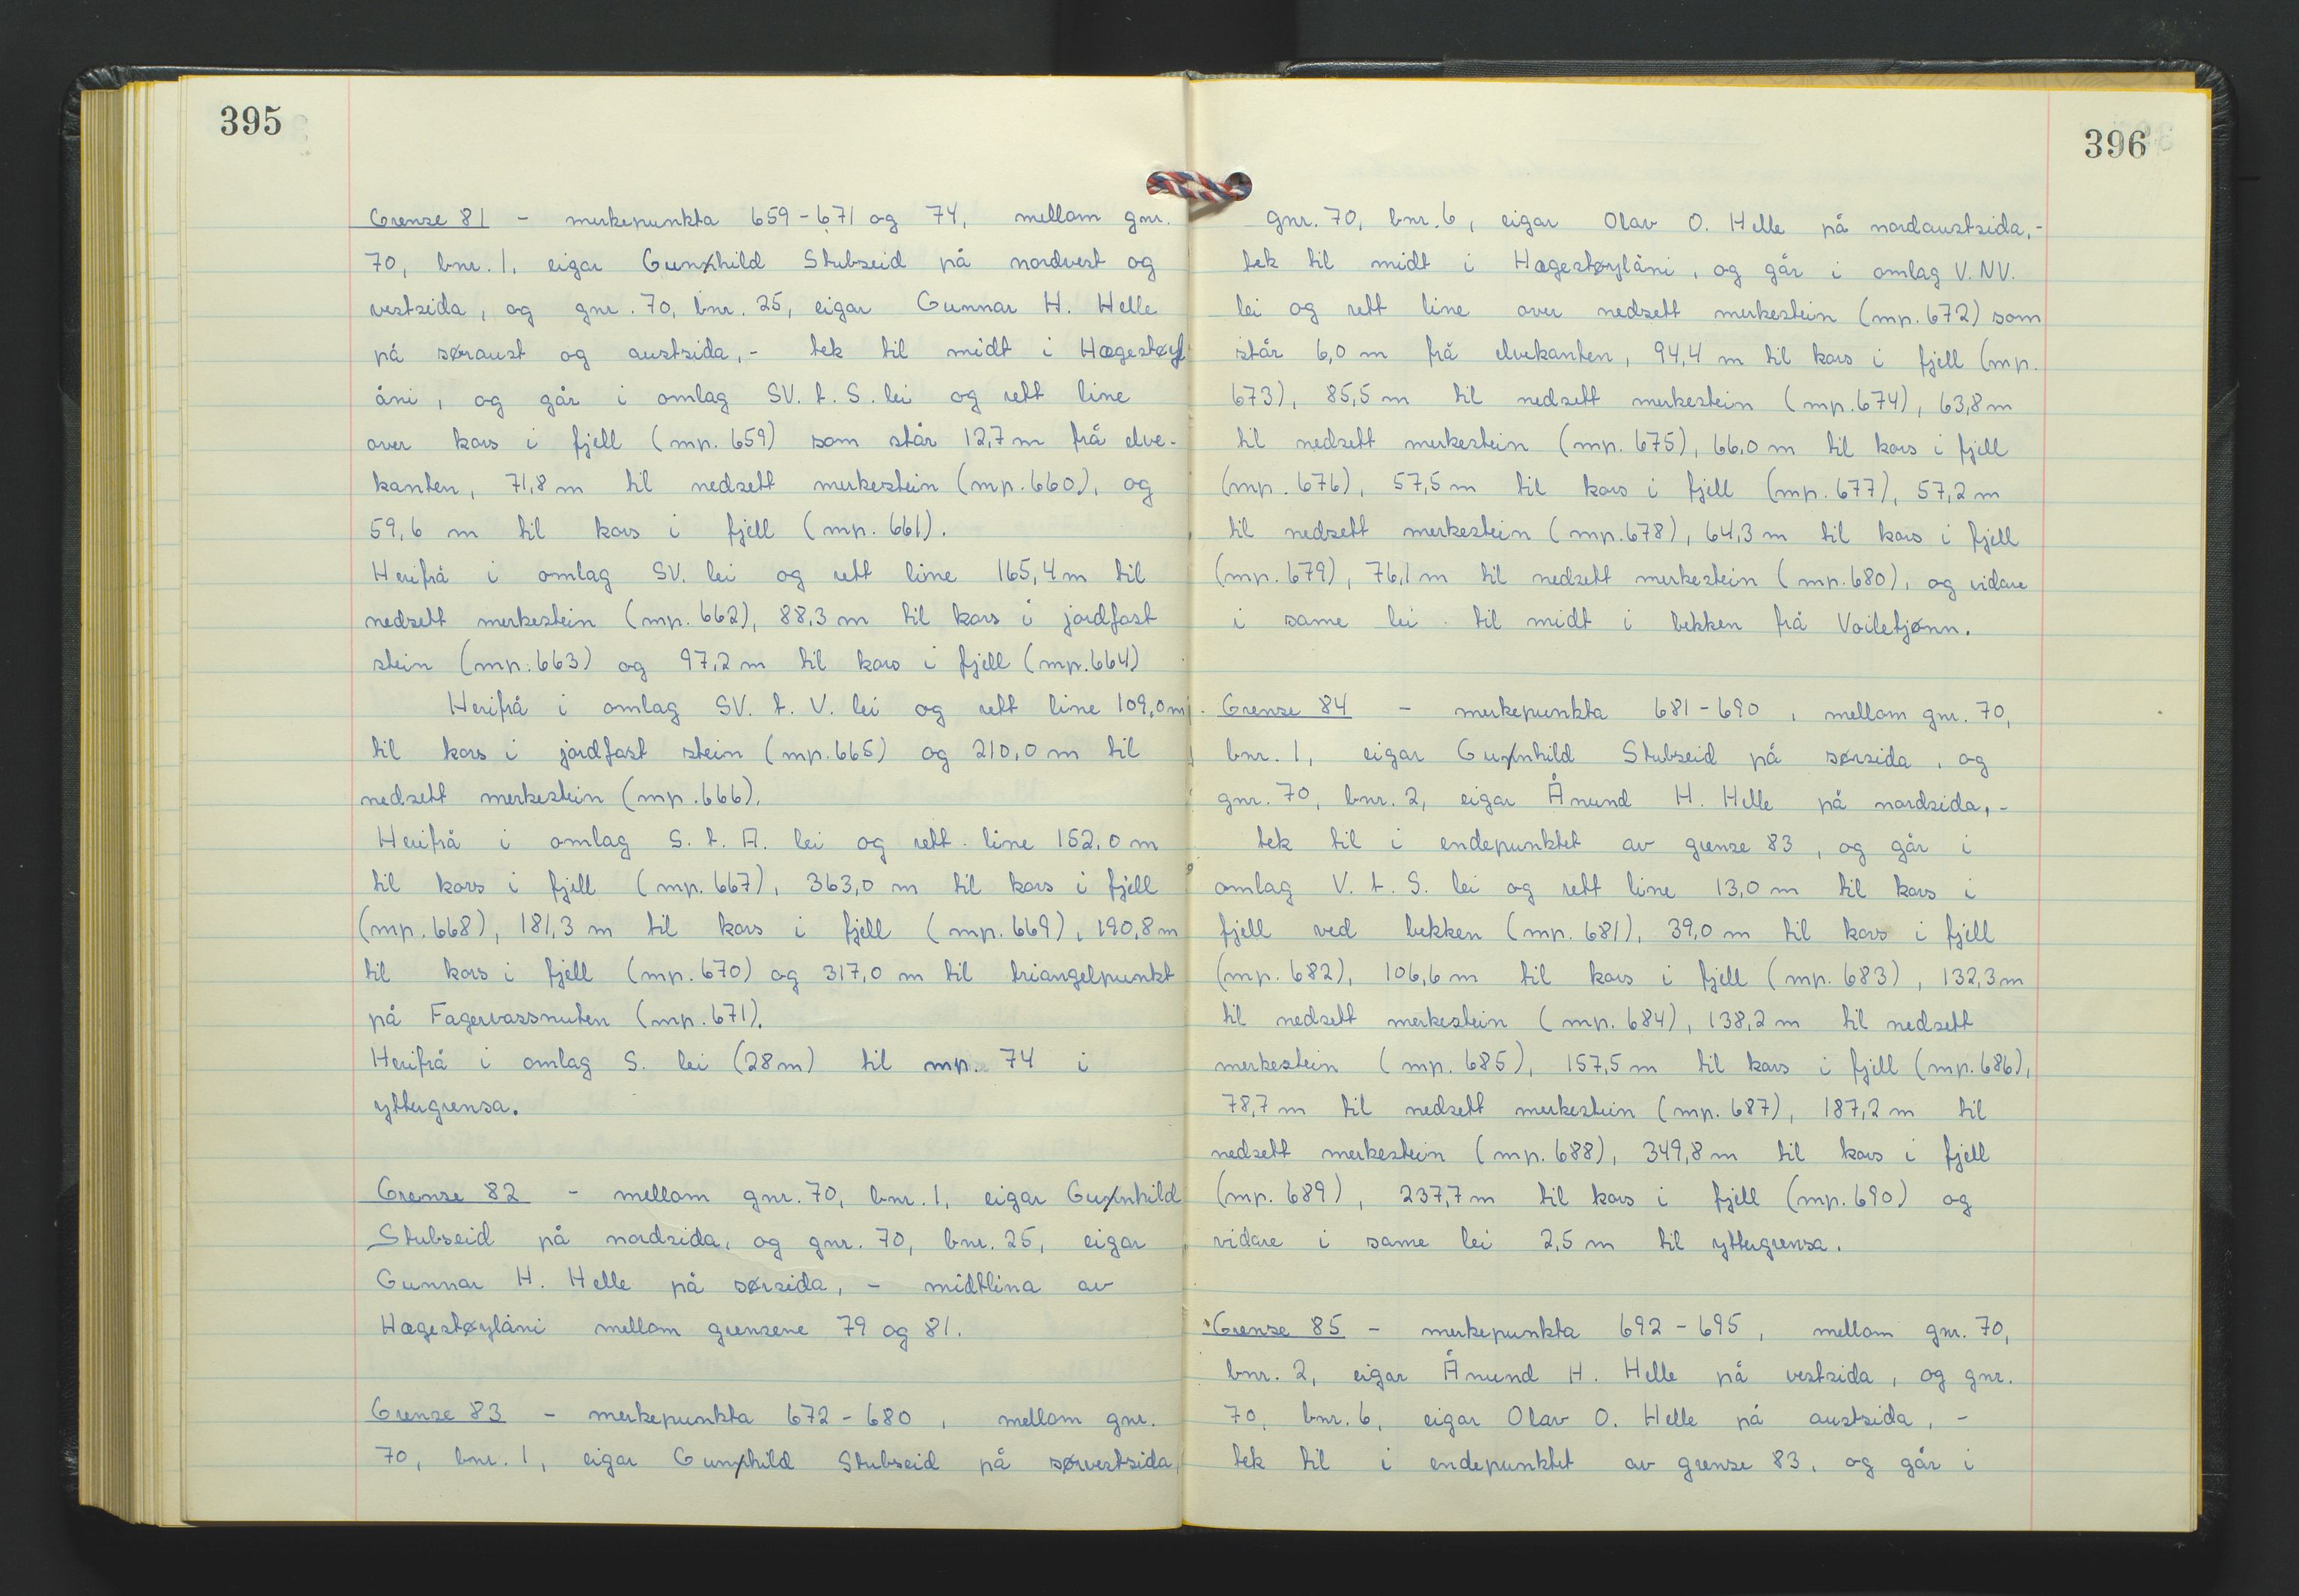 395
Grense 81 - merkepunkta 659-671 og 74, mellom gnr.
70, bnr. 1, eigar Gunhild Stubseid på nordvest og
vestsida, og gnr. 70, bnr. 25, eigar Gunnar H. Helle
på søraust og austsida, - tek til midt i Hægestøyl
åni, og går i omlag SV. t. S. lei og rett line
over kors i fjell (mp. 659) som står 12,7 m frå elve-
kanten, 71,8 m til nedsett merkestein (mp. 660), og
59,6 m til kors i fjell (mp. 661).
Herifrå i omlag SV. lei og rett line 165,4 m til
nedsett merkestein (mp. 662), 88,3 m til kors i jordfast
stein (mp. 663) og 97,2 m til kors i fjell (mp. 664)
Herifrå i omlag SV. t. V. lei og rett line 109,0 m
til kors i jordfast stein (mp. 665) og 210,0 m til
nedsett merkestein (mp. 666).
Herifrå i omlag S. t. A. lei og rett line 152,0 m
til kors i fjell (mp. 667), 363,0 m til kors i fjell
(mp. 668), 181,3 m til kors i fjell (mp. 669), 190,8 m
til kors i fjell (mp. 670) og 317,0 m til triangelpunkt
på Fagervassnuten (mp. 671).
Herifrå i omlag S. lei (28 m) til mp. 74 i
yttergrensa.
Grense 82 - mellom gnr. 70, bnr. 1, eigar Gunhild
Stubseid på nordsida, og gnr. 70, bnr. 25, eigar
Gunnar H. Helle på sørsida, - midtlina av
Hægestøylåni mellom grensene 79 og 81.
Grense 83 - merkepunkta 672-680, mellom gnr.
70, bnr. 1, eigar Gunhild Stubseid på sørvestsida,
396
gnr. 70, bnr. 6, eigar Olav O. Helle på nordaustsida, -
tek til midt i Hægestøylåni, og går i omlag V. NV.
lei og rett line over nedsett merkestein (mp. 672) som
står 6,0 m frå elvekanten, 94,4 m til kors i fjell (mp.
673), 85,5 m til nedsett merkestein (mp. 674), 63,8 m
til nedsett merkestein (mp. 675), 66,0 m til kors i fjell
(mp. 676), 57,5 m til kors i fjell (mp. 677), 57,2 m
til nedsett merkestein (mp. 678), 64,3 m til kors i fjell
(mp. 679), 76,1 m til nedsett merkestein (mp. 680), og vidare
i same lei til midt i bekken frå Voiletjønn.
Grense 84 - merkepunkta 681-690, mellom gnr. 70,
bnr. 1, eigar Gunhild Stubseid på sørsida, og
gnr. 70, bnr. 2, eigar Ånund H. Helle på nordsida, -
tek til i endepunktet av grense 83, og går i
omlag V. t. S. lei og rett line 13,0 m til kors i
fjell ved bekken (mp. 681), 39,0 m til kors i fjell
(mp. 682), 106,6 m til kors i fjell (mp. 683), 132,3 m
til nedsett merkestein (mp. 684), 138,2 m til nedsett
merkestein (mp. 685), 157,5 m til kors i fjell (mp. 686),
78,7 m til nedsett merkestein (mp. 687), 187,2 m til
nedsett merkestein (mp. 688), 349,8 m til kors i fjell
(mp. 689), 237,7 m til kors i fjell (mp. 690) og
vidare i same lei 2,5 m til yttergrensa.
Grense 85 - merkepunkta 692-695, mellom gnr. 70,
bnr. 2, eigar Ånund H. Helle på vestsida, og gnr.
70, bnr. 6, eigar Olav O. Helle på austsida, -
tek til i endepunktet av grense 83, og går i